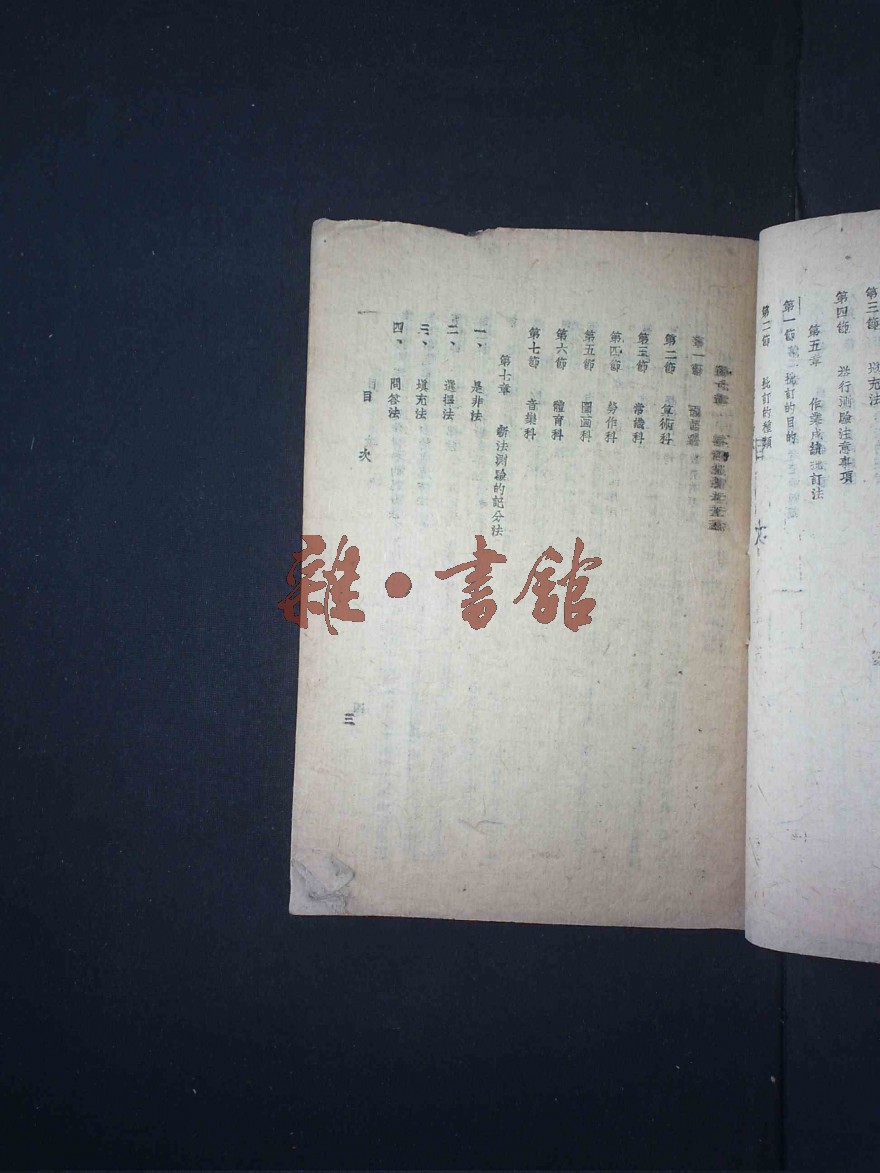 第三節 填充法
第四節 举行測驗注意事項
第五章 作業成績批訂法
第一節 批訂的目的
第二節 批訂的種類
第一節
第二節 算術科
第三節 常識科
第四節 勞作科
第五節 圖画科
第六節 體育科
第七節 音樂科
第七章 新法測驗的記分法
一、 是非法
二、 選擇法
三、 填充法
四、 問答法
目次
三
雜·書館